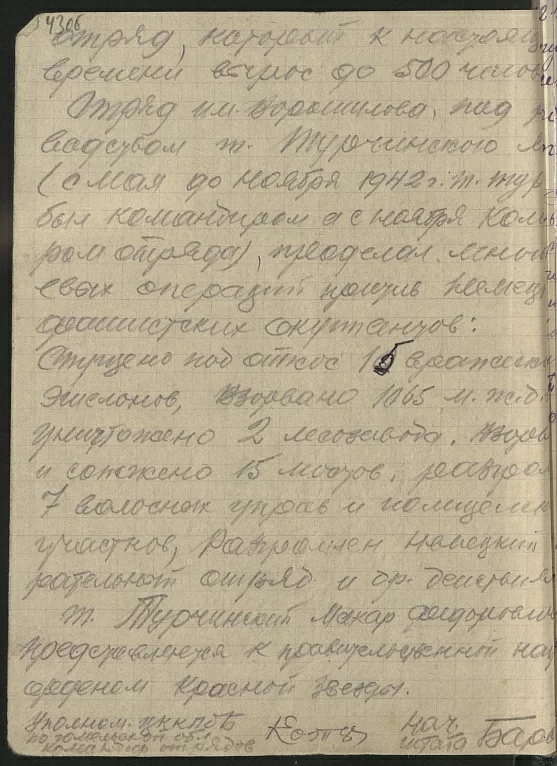 4306
отряд, который к настоящ
времени вырос до 500 челов
Отряд им. Ворошилова, под р
водством т. Турчинского М
(с мая до ноября 1942 г. т. Тур
был командиром а с ноября ком
ром отряда), проделал много
евых операций против немец
фашистских оккупантов:
Спущено под откос 16 вражеск
эшелонов, взорвано 1065 м. ж.д.
уничтожено 2 лесозавода. взорв
и сожжено 15 мостов, разгро
7 волосных управ и полицейск
участков, Разгромлен немецкий
рательный отряд и др. действия
т. Турчинский Макар Федорович
представляется к правительственной наг
орденом Красной Звезды.
Уполном. ЦККПбБ
по гомельской обл.
командир отрядов
нач.
штаба Баров